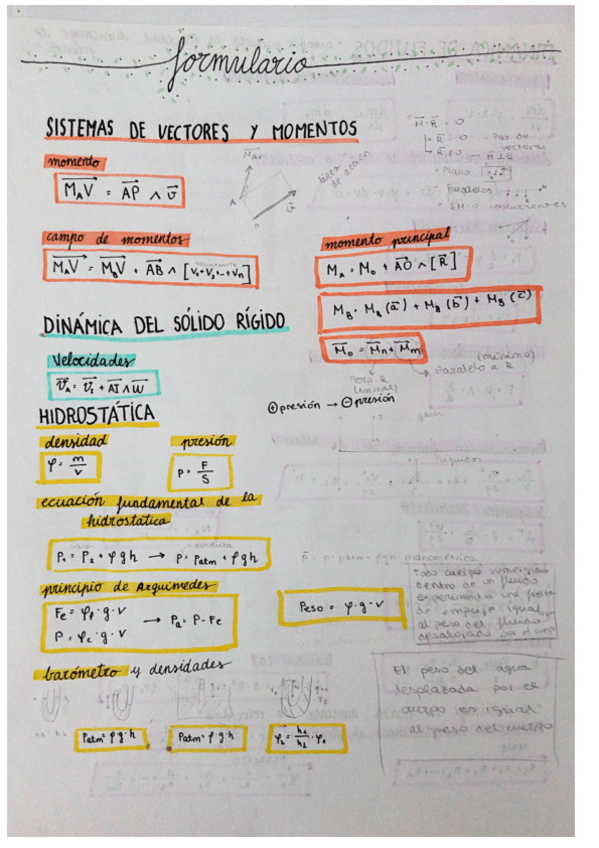 formulario
SISTEMAS DE VECTORES Y MOMENTOS
momento
M_AV = AP ∧ v
línea de acción
M · R = 0
R = 0 → Par de vectores
R ≠ 0 → M ⊥ R
• Plano
• paralelos
• concurrentes
campo de momentos
M_AV = M_BV + AB ∧ [V₁+V₂...+Vn]
momento principal
M_A = M_O + AO ∧ [R]
M_B = M_B(a) + M_B(b) + M_B(c)
M_O = Mn + Mm
(mínimo)
Paralelo a R
Perp. R
(normal)
DINÁMICA DEL SÓLIDO RÍGIDO
Velocidades
v_A = v_I + AI ∧ w
HIDROSTÁTICA
⊕ presión → ⊖ presión
densidad
φ = m/v
presión
P = F/S
ecuación fundamental de la
hidrostática
P₁ = P₂ + φgh → P = Patm + φgh
P = P - Patm = φgh manométrica
principio de Arquímedes
Fe = φf · g · v
P = φc · g · v
→ Pa = P - Fe
Peso = φ · g · v
Todo cuerpo sumergido
dentro de un fluido
experimenta una fuerza
de empuje igual
al peso del fluido
desalojado por el cuerpo
barómetro y densidades
Patm = φg·h
Patm = φg·h
φ₂ = h₁/h₂ · φ₁
El peso del agua
desplazada por el
cuerpo es igual
al peso del cuerpo